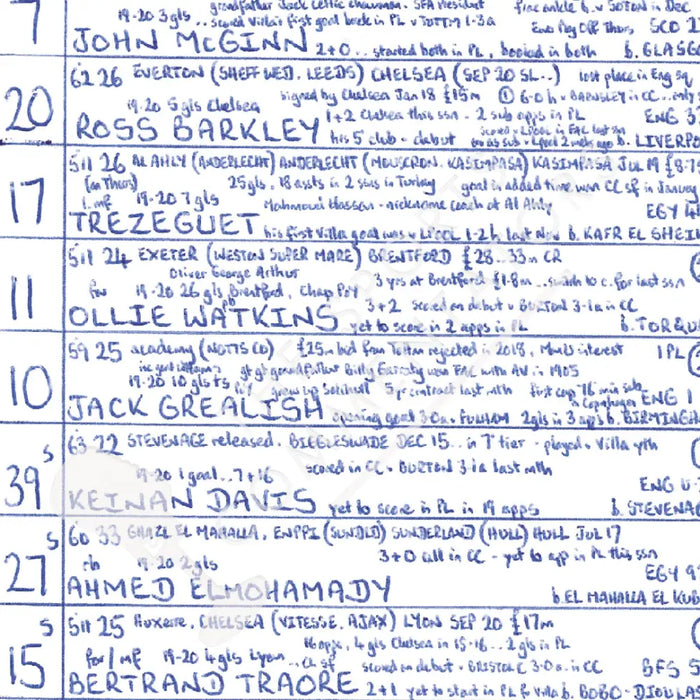 7
grandfather Jock Celtic chairman. SFA President
19-20 3 gls .. scored Villa's first goal back in PL v TOTTM 1-3a
JOHN McGINN 2+0.. started both in PL, booked in both b. GLASG
20
62 26 EVERTON (SHEFF WED, LEEDS) CHELSEA (SEP 20 SL..) lost place in Eng sq
signed by Chelsea Jan 18 £15m ① 6-0 h v BARNSLEY in CC..
19-20 5 gls Chelsea 1+2 Chelsea this ssn - 2 sub apps in PL ENG 3
ROSS BARKLEY his 5th club - debut b. LIVERPO
17
511 26 AL AHLY (ANDERLECHT) ANDERLECHT (MOUSCRON, KASIMPASA) KASIMPASA Jul 19 £8.75
25 gls, 18 assts in 2 ssns in Turkey goal in added time won CC sf in January
19-20 7 gls Mahmoud Hassan - nickname coach at Al Ahly EGY 4
TREZEGUET his first Villa goal was v LPOOL 1-2 h, last Nov b. KAFR EL SHEI
11
511 24 EXETER (WESTON SUPER MARE) BRENTFORD £28..33m CR
Oliver George Arthur 3 yrs at Brentford £1.8m ..switch to c.for last ssn
fw 19-20 26 gls Brentford, Chap PoY 3+2 scored on debut v BURTON 3-1a in CC
OLLIE WATKINS yet to score in 2 apps in PL b. TORQU
10
59 25 academy (NOTTS CO) £25m bid from Tottm rejected in 2018, ManU interest 1 PL
gt gt grandfather Billy Garraty won FAC with AV in 1905
19-20 10 gls grew up Solihull 5 yr contract last mth first cap, 76 min sub in Copenhagen ENG 1
JACK GREALISH opening goal 3-0a v FULHAM 2gls in 3 apps b. BIRMINGH
39 s
63 22 STEVENAGE released. BIGGLESWADE DEC 15.. in 7th tier - played v Villa yth
19-20 1 goal..7+16 scored in CC v BURTON 3-1a last mth ENG U
KEINAN DAVIS yet to score in PL in 19 apps b. STEVENAG
27 s
60 33 GHAZL EL MAHALLA, ENPPI (SUNDLD) SUNDERLAND (HULL) HULL Jul 17
rb 19-20 2 gls 3+0 all in CC - yet to app in PL this ssn EGY 9
AHMED ELMOHAMADY b. EL MAHALLA EL KUB
15 s
511 25 Auxerre, CHELSEA (VITESSE, AJAX) LYON SEP 20 £17m
16 apps, 4 gls Chelsea in 15-16.. 2 gls in PL
for/mf 19-20 4 gls Lyon ..CL sf scored on debut v BRISTOL C 3-0a.. in CC BFS 5
BERTRAND TRAORE 2+1 yet to start in PL for Villa b. BOBO-DIOULA